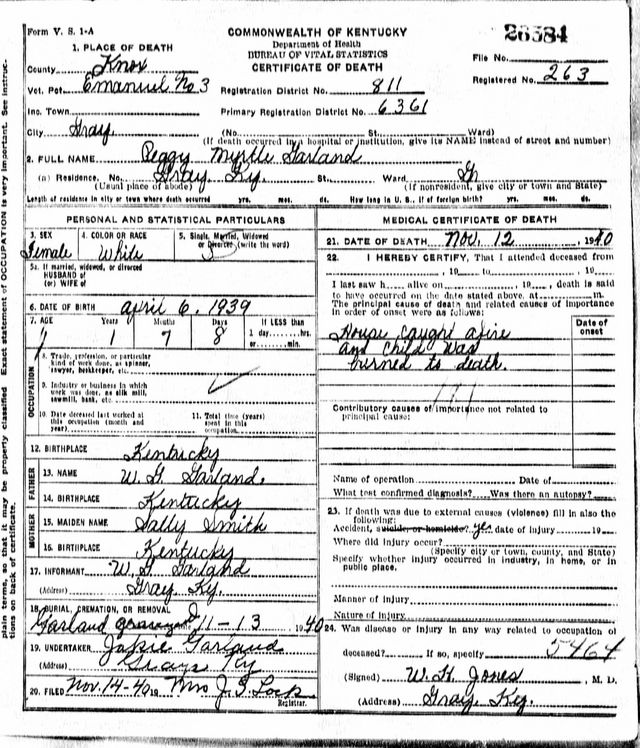 Form V. S. 1-A
COMMONWEALTH OF KENTUCKY
Department of Health
BUREAU OF VITAL STATISTICS
CERTIFICATE OF DEATH
26384
File No.
Registered No. 263
1. PLACE OF DEATH
County Knox
Vot. Pct. Emanuel No 3
Registration District No. 811
Inc. Town
Primary Registration District No. 6361
City Gray (No. St. Ward)
(If death occurred in a hospital or institution, give its NAME instead of street and number)
2. FULL NAME Peggy Myrtle Garland
(a) Residence. No. Gray, Ky. St. Ward
(Usual place of abode) (If nonresident, give city or town and State)
Length of residence in city or town where death occurred yrs. mos. ds. How long in U. S., if of foreign birth? yrs. mos. ds.
PERSONAL AND STATISTICAL PARTICULARS
3. SEX 4. COLOR OR RACE 5. Single, Married, Widowed
or Divorced (write the word)
Female White S
5a. If married, widowed, or divorced
HUSBAND of
(or) WIFE of
6. DATE OF BIRTH April 6, 1939
7. AGE Years Months Days If LESS than
1 7 8 1 day, hrs.
or min.
OCCUPATION
8. Trade, profession, or particular
kind of work done, as spinner,
sawyer, bookkeeper, etc.
9. Industry or business in which
work was done, as silk mill,
sawmill, bank, etc.
10. Date deceased last worked at
this occupation (month and
year)
11. Total time (years)
spent in this
occupation
12. BIRTHPLACE Kentucky
FATHER
13. NAME W. G. Garland.
14. BIRTHPLACE Kentucky
MOTHER
15. MAIDEN NAME Sally Smith
16. BIRTHPLACE Kentucky
17. INFORMANT W. G. Garland
(Address) Gray Ky.
18. BURIAL, CREMATION, OR REMOVAL
Garland 11-13 1940
19. UNDERTAKER Jakie Garland
(Address) Grays Ky
20. FILED Nov. 14-40 19 Mrs J. S. Lock
Registrar.
MEDICAL CERTIFICATE OF DEATH
21. DATE OF DEATH Nov. 12, 1940
22. I HEREBY CERTIFY, That I attended deceased from
, 19 to , 19
I last saw h alive on , 19 , death is said
to have occurred on the date stated above, at m.
The principal cause of death and related causes of importance
in order of onset were as follows:
Date of
onset
House caught afire
and child was
burned to death.
Contributory causes of importance not related to
principal cause:
Name of operation Date of
What test confirmed diagnosis? Was there an autopsy?
23. If death was due to external causes (violence) fill in also the
following:
Accident, suicide, or homicide? yes date of injury 19
Where did injury occur?
(Specify city or town, county, and State)
Specify whether injury occurred in industry, in home, or in
public place.
Manner of injury
Nature of injury
24. Was disease or injury in any way related to occupation of
deceased? If so, specify 5464
(Signed) W. H. Jones, M. D.
(Address) Gray, Ky.
plain terms, so that it may be properly classified Exact statement of OCCUPATION is very important. See instruc-
tions on back of certificate.